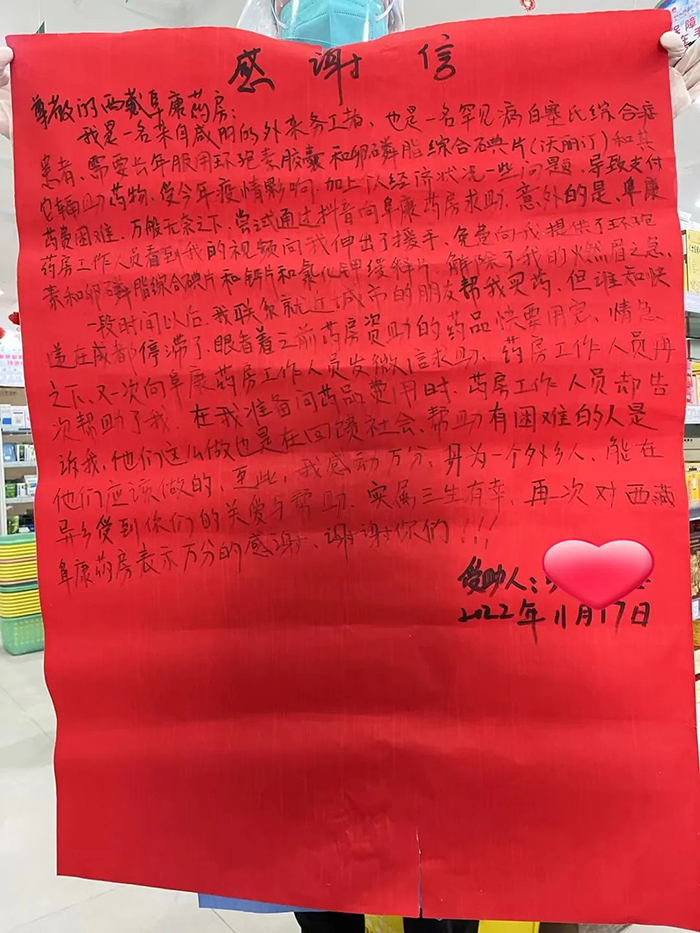 感谢信
尊敬的西藏阜康药房:
我是一名来自咸阳的外来务工者、也是一名罕见病白塞氏综合症
患者、需要长年服用环孢素胶囊和卵磷脂综合碘片(沃丽汀)和其
它辅助药物、受今年疫情影响、加上以经济状况一些问题、导致支付
药费困难、万般无奈之下、尝试通过抖音向阜康药房求助、意外的是、阜康
药房工作人员看到我的视频向我伸出了援手、免费向我提供了环孢
素和卵磷脂综合碘片和钙片和氯化钾缓释片、解除了我的火燃眉之急、
一段时间以后、我联系就近城市的朋友帮我买药、但谁知快
递在成都停滞了、眼看着之前药房资助的药品快要用完、情急
之下、又一次向阜康药房工作人员发微信求助、药房工作人员再
次帮助了我、在我准备问药品费用时、药房工作人员却告
诉我、他们这么做也是在回馈社会、帮助有困难的人是
他们应该做的、至此、我感动万分、身为一个外乡人、能在
异乡受到你们的关爱与帮助、实属三生有幸、再次对西藏
阜康药房表示万分的感谢、谢谢你们!!!
受助人:
2022年11月17日